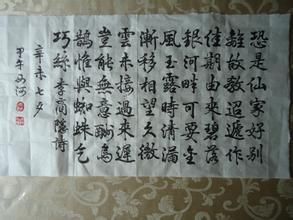 恐是仙家好别
離故教迢遞作
佳期由來碧落
銀河畔可要金
風玉露時清漏
漸移相望久微
雲未接過來遲
豈能無意酬烏
鵲惟與蜘蛛乞
巧絲 李商隱詩
辛未七夕
甲午